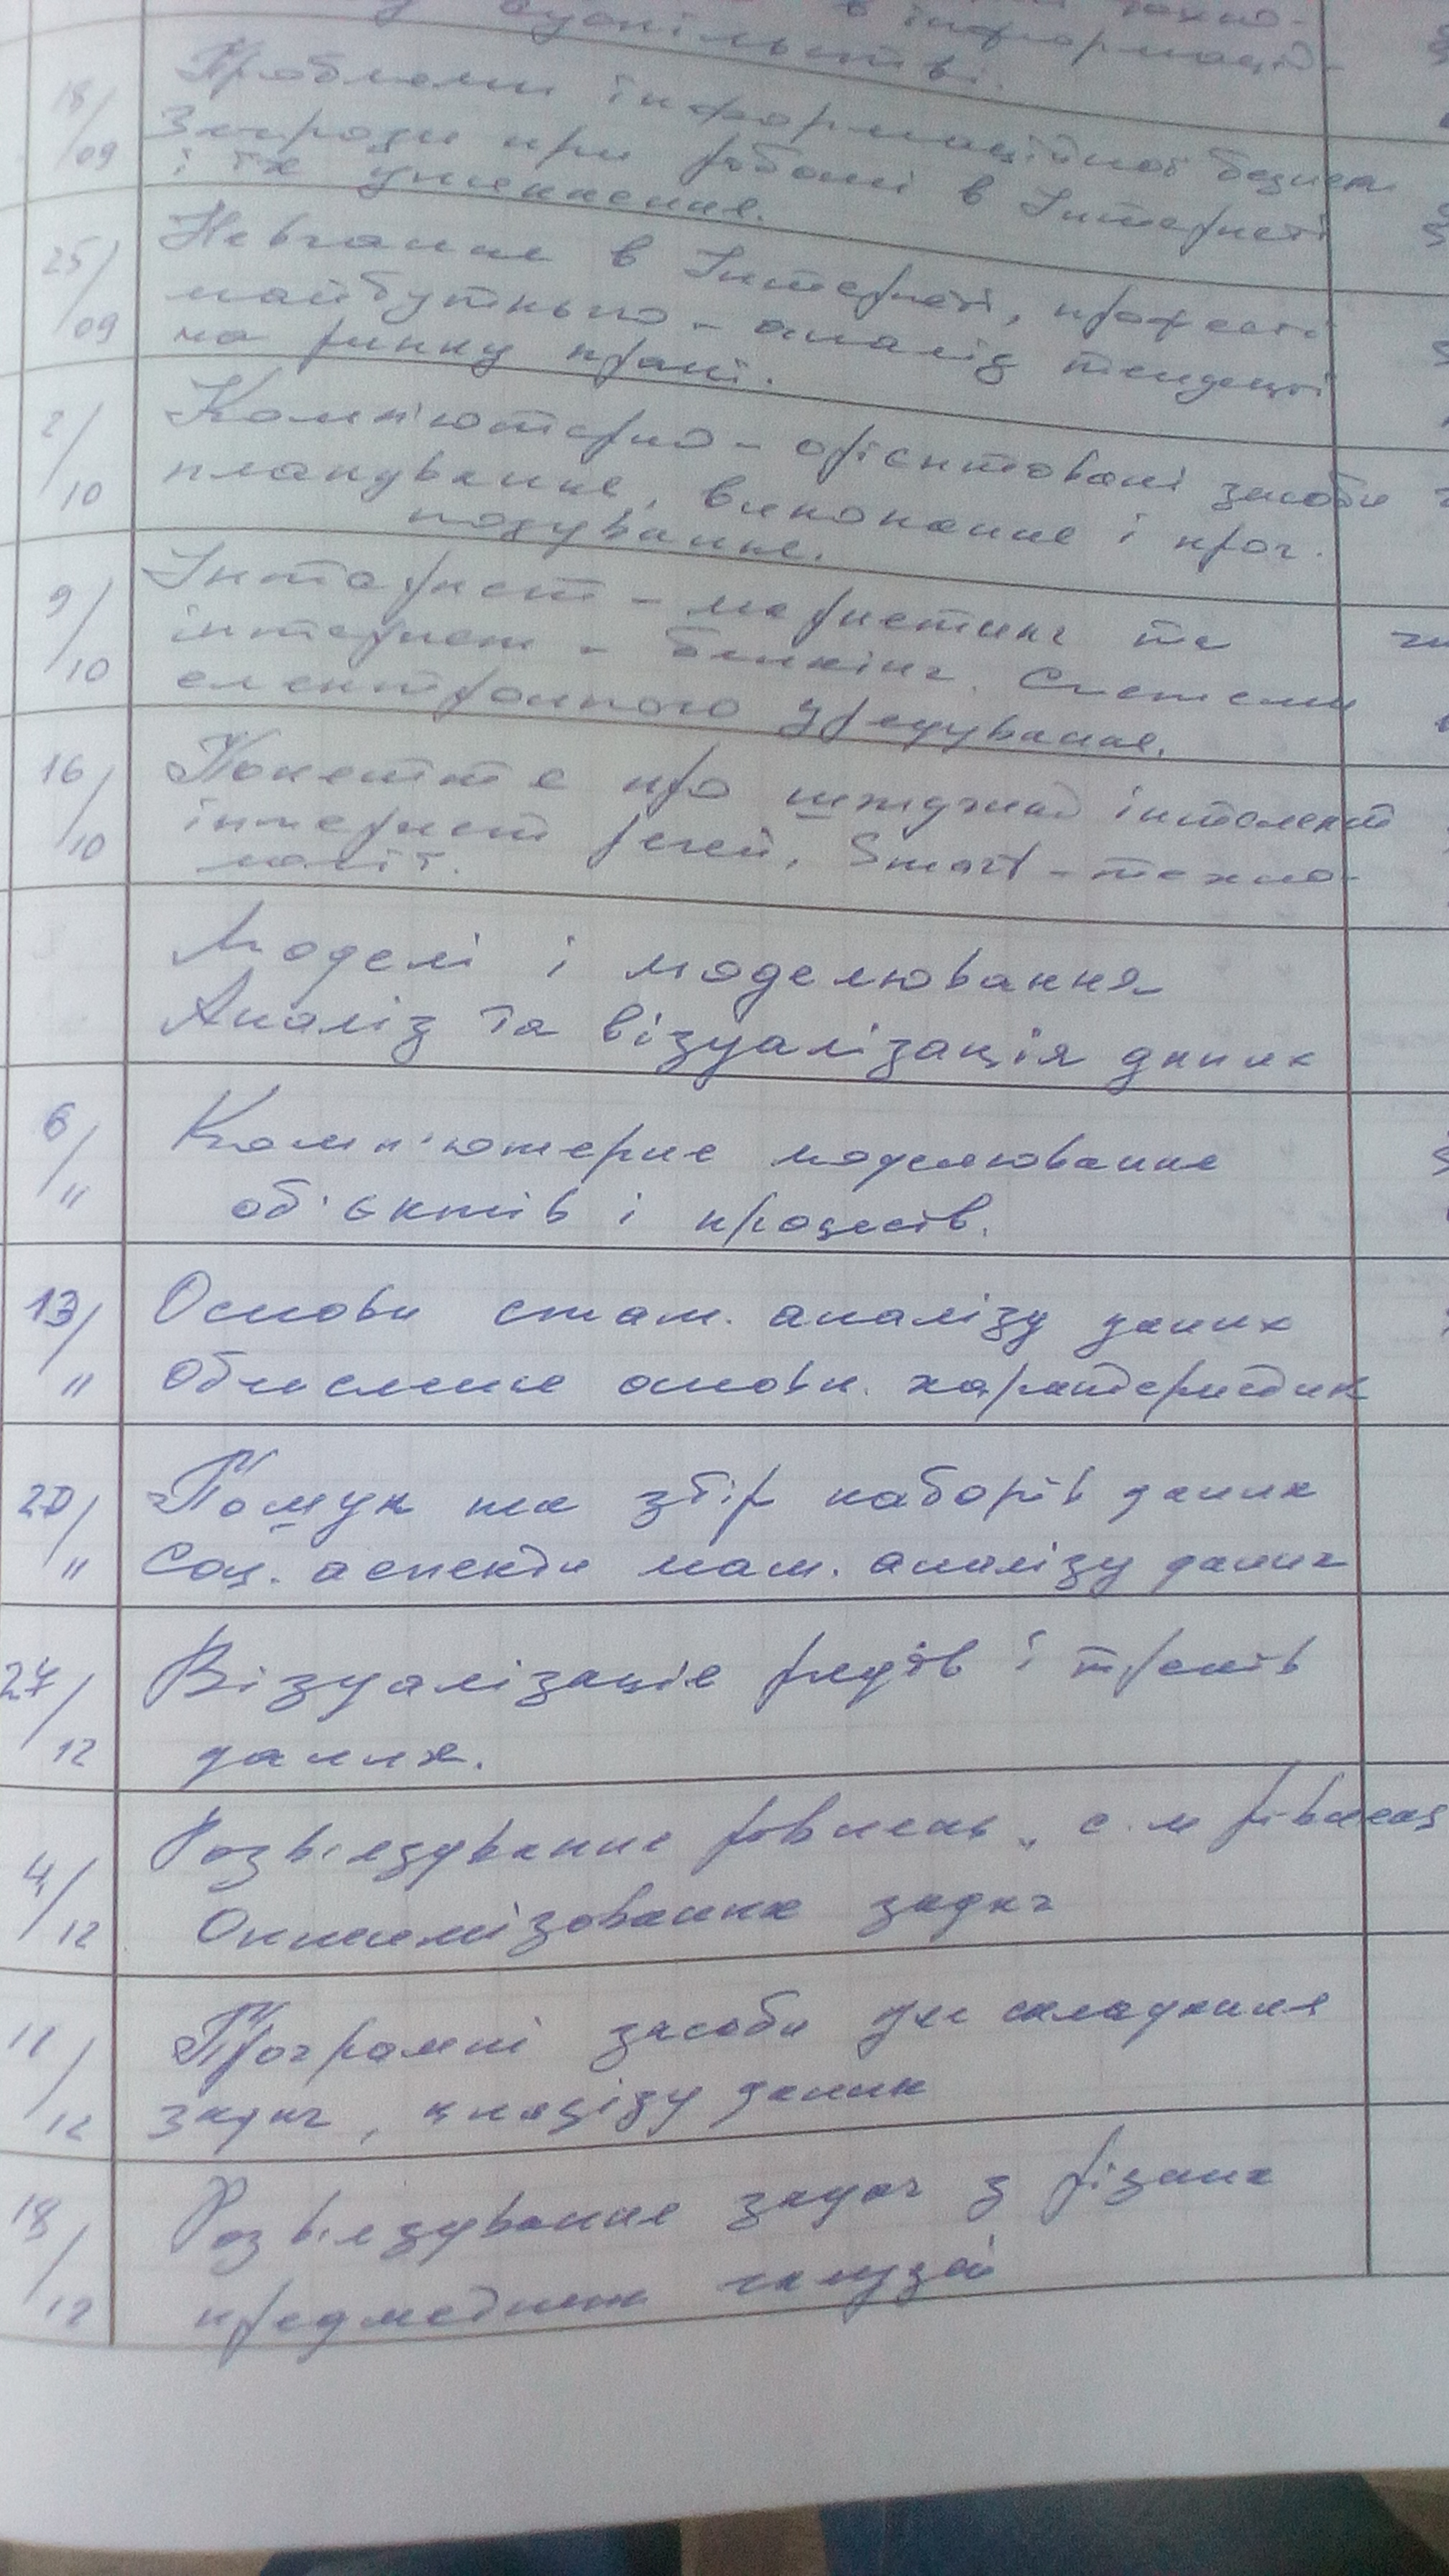 суспільстві. в інформацій-
18/09 Проблеми інформаційної безпеки
Загрози при роботі в Інтернеті
і їх уникнення.
25/09 Навчання в Інтернеті, професії
майбутнього - аналіз тенденцій
на ринку праці.
2/10 Комп'ютерно-орієнтовані засоби
планування, виконання і прог.
нозування.
9/10 Інтернет-маркетинг та
інтернет-банкінг. Системи
електронного урядування.
16/10 Поняття про штучний інтелект
інтернет речей, Smart-техно-
логії.
Моделі і моделювання
Аналіз та візуалізація даних
6/11 Комп'ютерне моделювання
об'єктів і процесів.
13/11 Основи стат. аналізу даних
Обчислення основн. характеристик
20/11 Пошук та збір наборів даних
Соц. аспекти мат. аналізу даних
27/12 Візуалізація рядів і трендів
даних.
4/12 Розв'язування рівнянь, с-м рівнянь
Оптимізованих задач
11/12 Програмні засоби для складання
задач, аналізу даних
18/12 Розв'язування задач з різних
предметних галузей